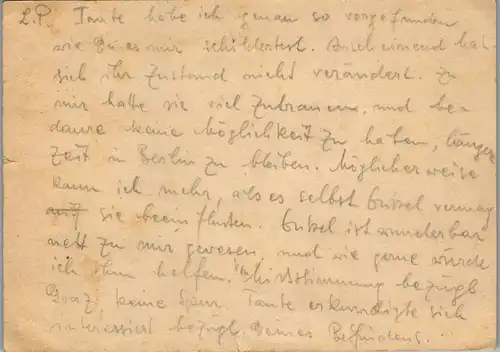 L.P. Tante habe ich genau so vorgefunden
wie Du es mir schildertest. Anscheinend hat
sich ihr Zustand nicht verändert. Zu
mir hatte sie viel Zutrauen, und be-
daure keine Möglichkeit zu haben, länger
Zeit in Berlin zu bleiben. Möglicherweise
kann ich mehr, als es selbst Onkel vermag
sie beeinflussen. Onkel ist wunderbar
nett zu mir gewesen, und wie gerne würde
ich ihm helfen. Misstimmung bezügl.
Graz, keine Spur. Tante erkundigte sich
interessiert bezügl. Deines Befindens...